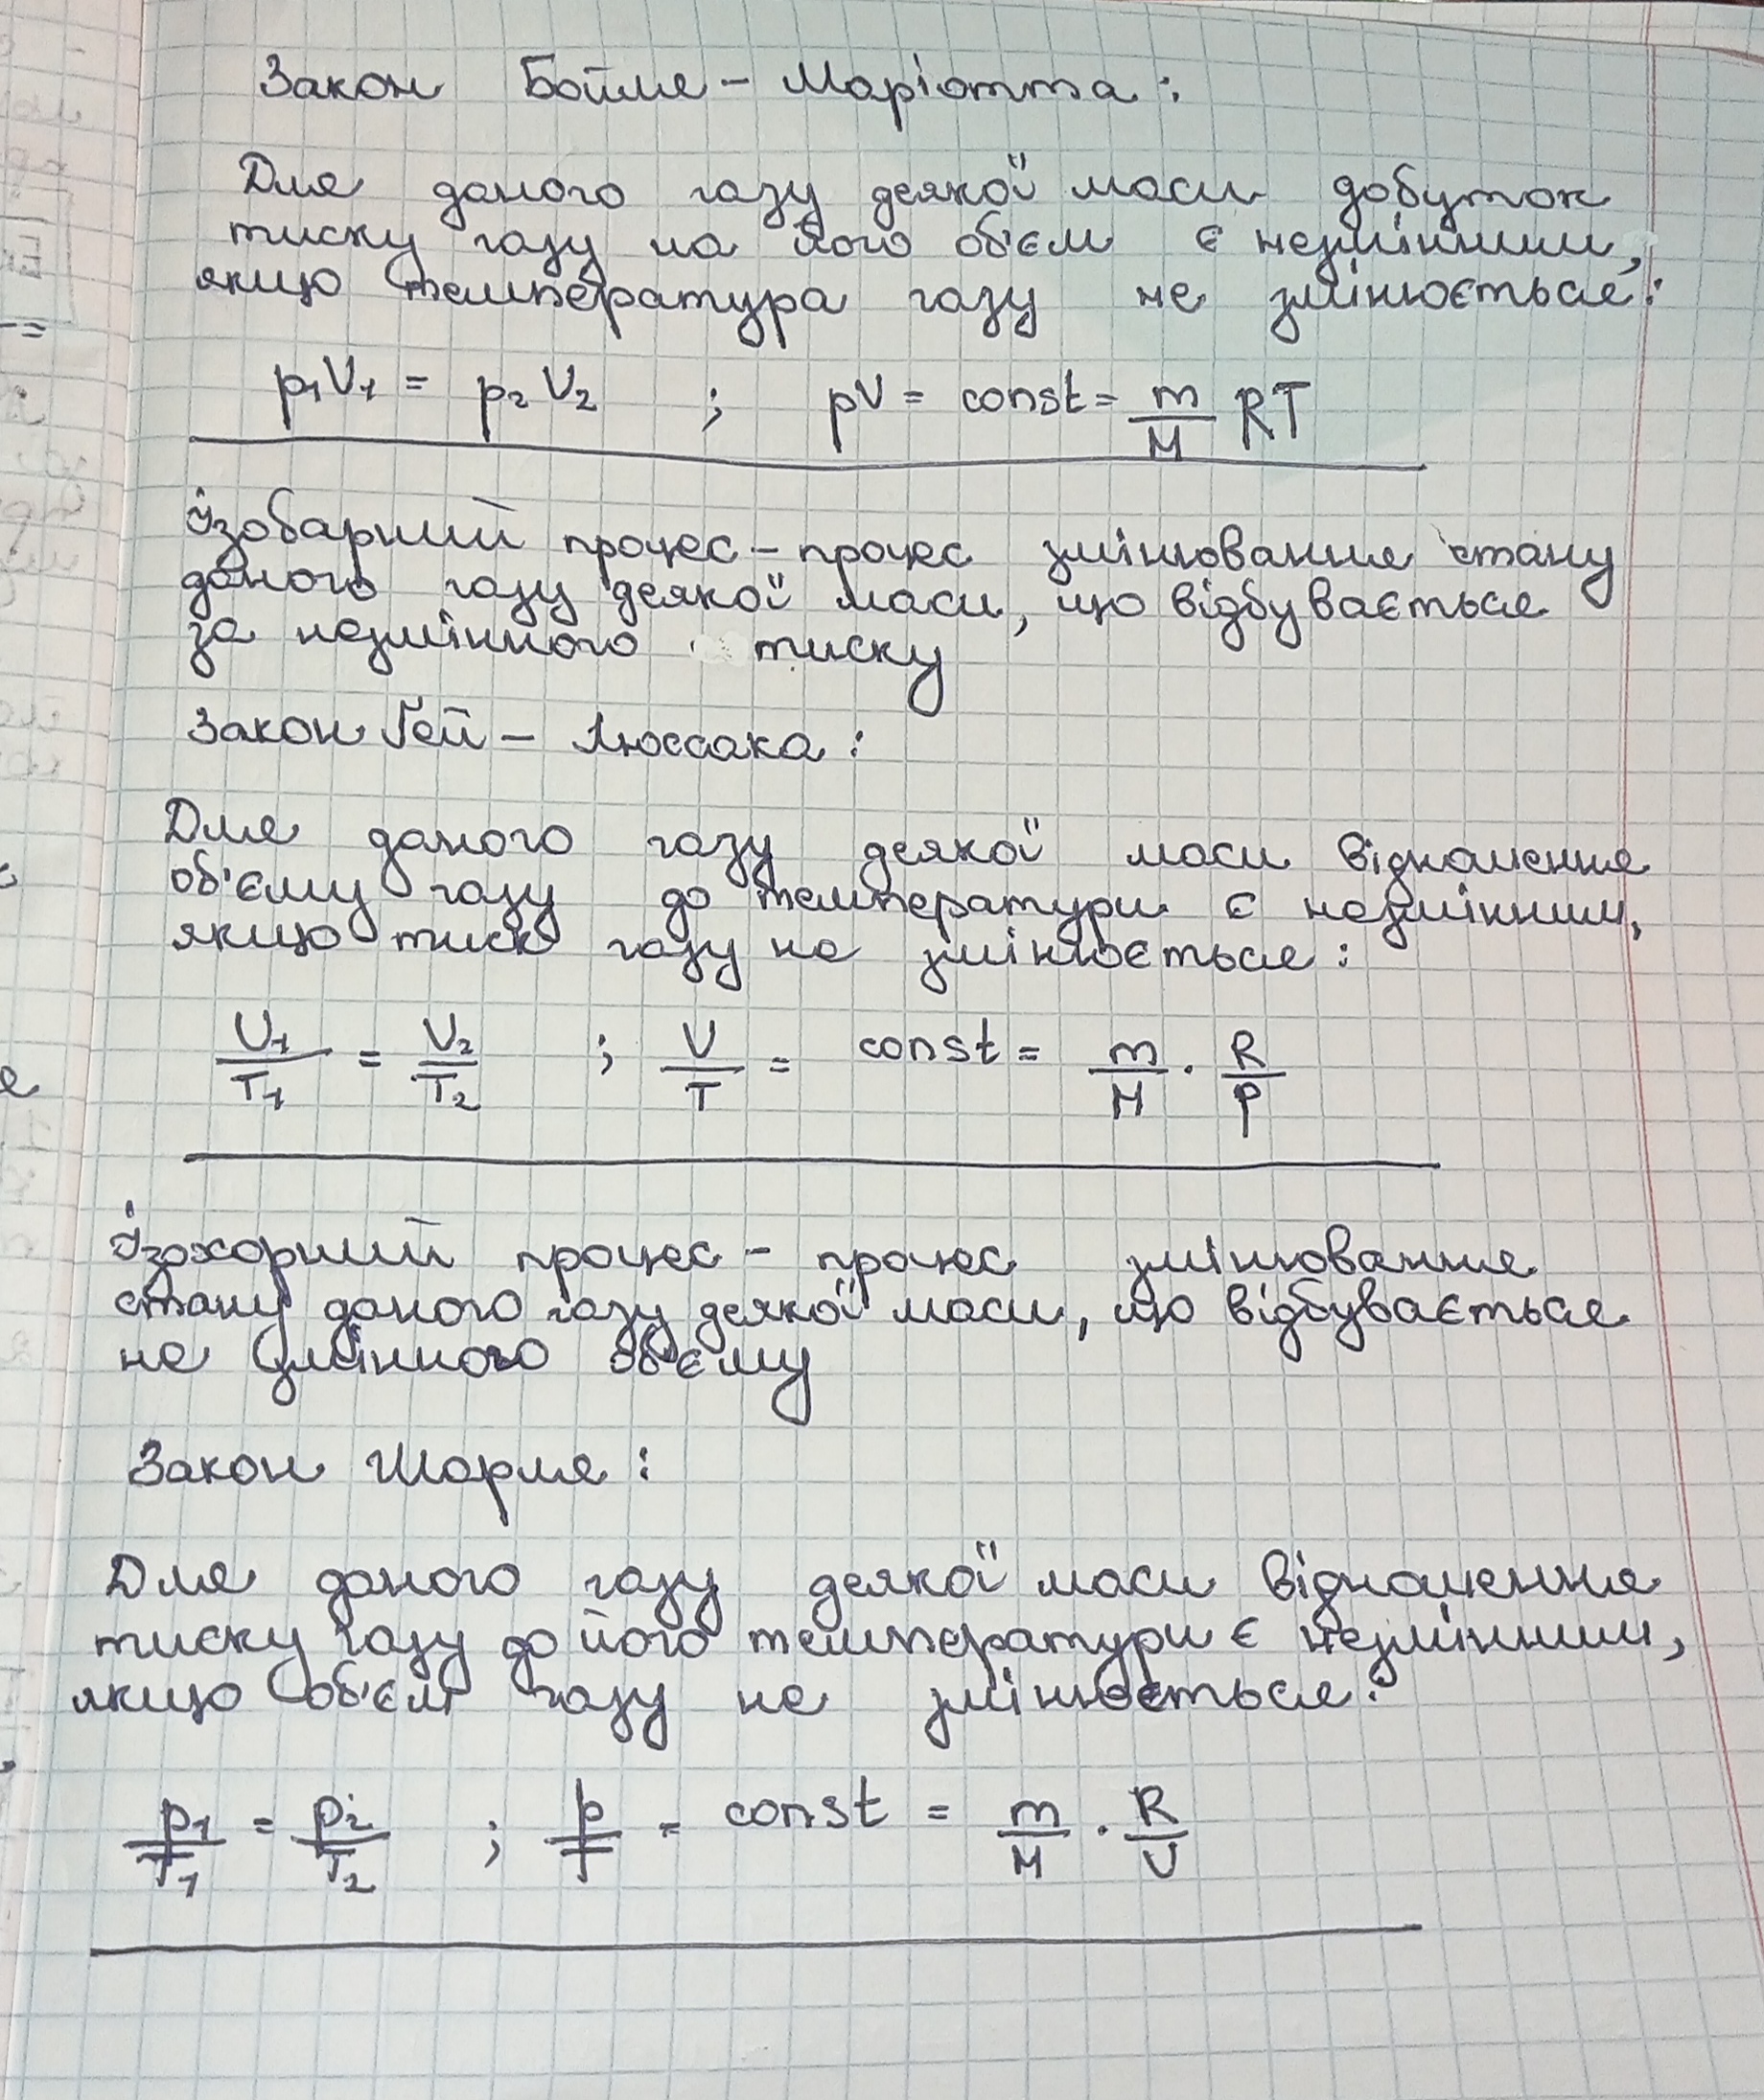 Закон Бойля – Маріотта:
Для даного газу деякої маси добуток
тиску газу на його об'єм є незмінним,
якщо температура газу не змінюється:
p₁V₁ = p₂V₂ ; pV = const = m/M RT
Ізобарний процес – процес змінювання стану
даного газу деякої маси, що відбувається
за незмінного тиску
Закон Ґей – Люссака:
Для даного газу деякої маси відношення
об'єму газу до температури є незмінним,
якщо тиск газу не змінюється:
V₁/T₁ = V₂/T₂ ; V/T = const = m/M · R/p
Ізохорний процес – процес змінювання
стану даного газу деякої маси, що відбувається
не змінного об'єму
Закон Шарля:
Для даного газу деякої маси відношення
тиску газу до його температури є незмінним,
якщо об'єм газу не змінюється:
p₁/T₁ = p₂/T₂ ; p/T = const = m/M · R/V